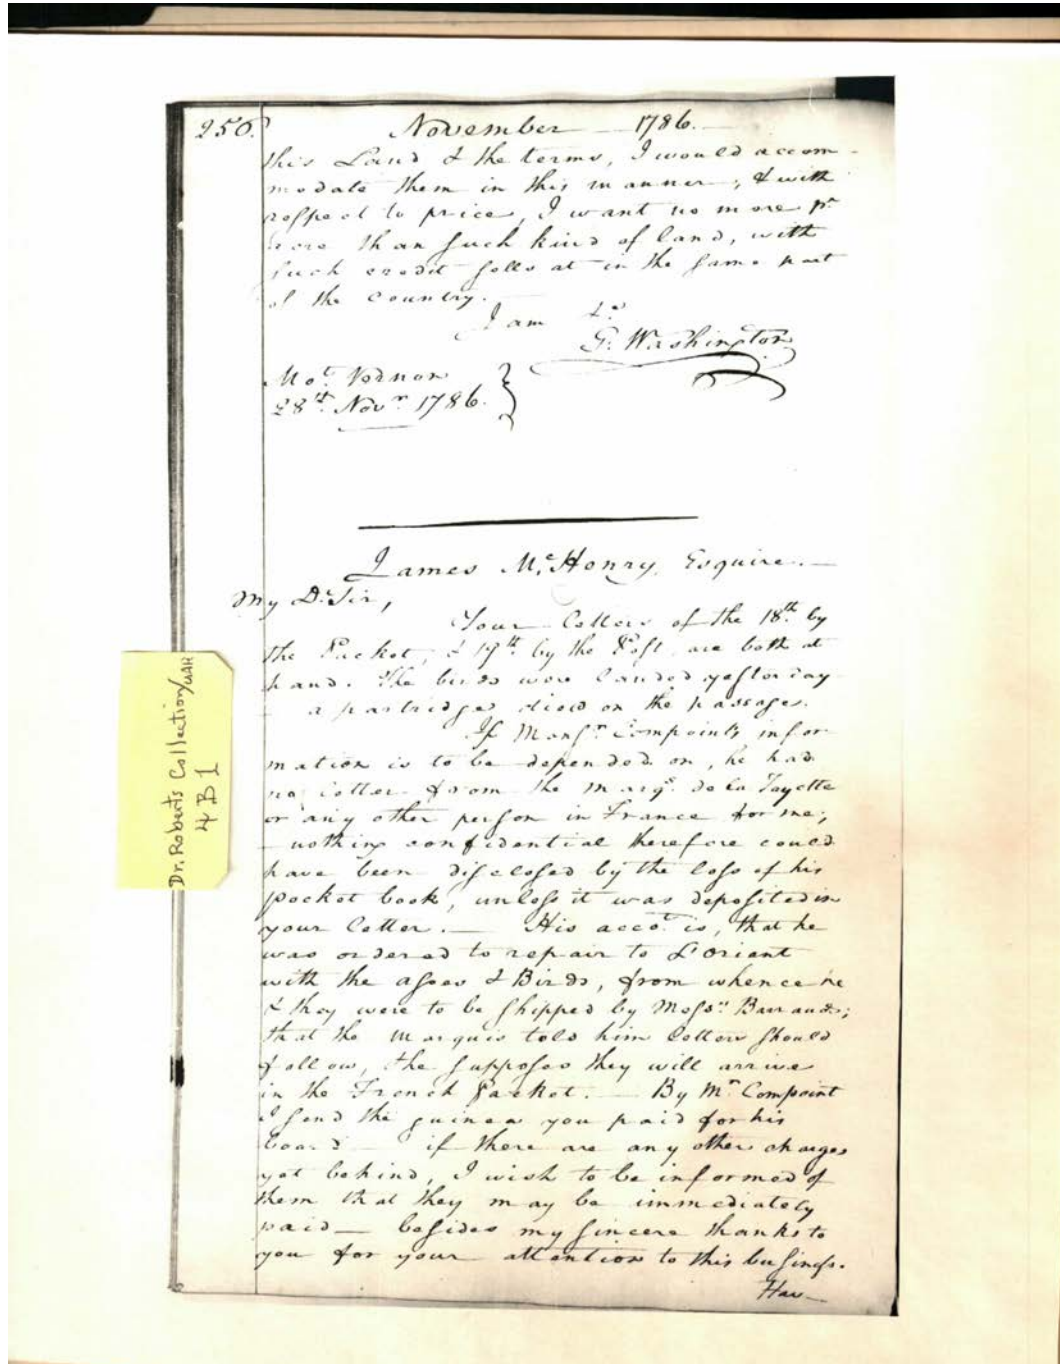 250. November — 1786. —
this Land & the terms, I would accom-
modate them in this manner; & with
respect to price, I want no more pr.
Acre than such kind of land, with
such credit sells at in the same part
of the Country.
I am &ca
G: Washington
Mot. Vernon
28th. Novr. 1786.
James McHenry, Esquire. —
My Dr. Sir,
Your Letters of the 18th. by
the Packet, & 19th. by the Post, are both at
hand. The birds were landed yesterday
— a partridge died on the passage.
If Monsr. Compoint's infor-
mation is to be depended on, he had
no letter from the Marqs. de la Fayette
or any other person in France for me;
— nothing confidential therefore could
have been disclosed by the loss of his
pocket book, unless it was deposited in
your letter. — His accot. is, that he
was ordered to repair to L'Orient
with the asses & Birds, from whence he
& they were to be shipped by Messrs. Barrauds;
that the Marquis told him letters should
follow, & he supposes they will arrive
in the French Packet. — By Mr. Compoint
I send the guineas you paid for his
board — if there are any other charges
yet behind, I wish to be informed of
them that they may be immediately
paid — besides my sincere thanks to
you for your attention to this business.
Hav—
Dr. Roberts Collection/UAH
4 B 1